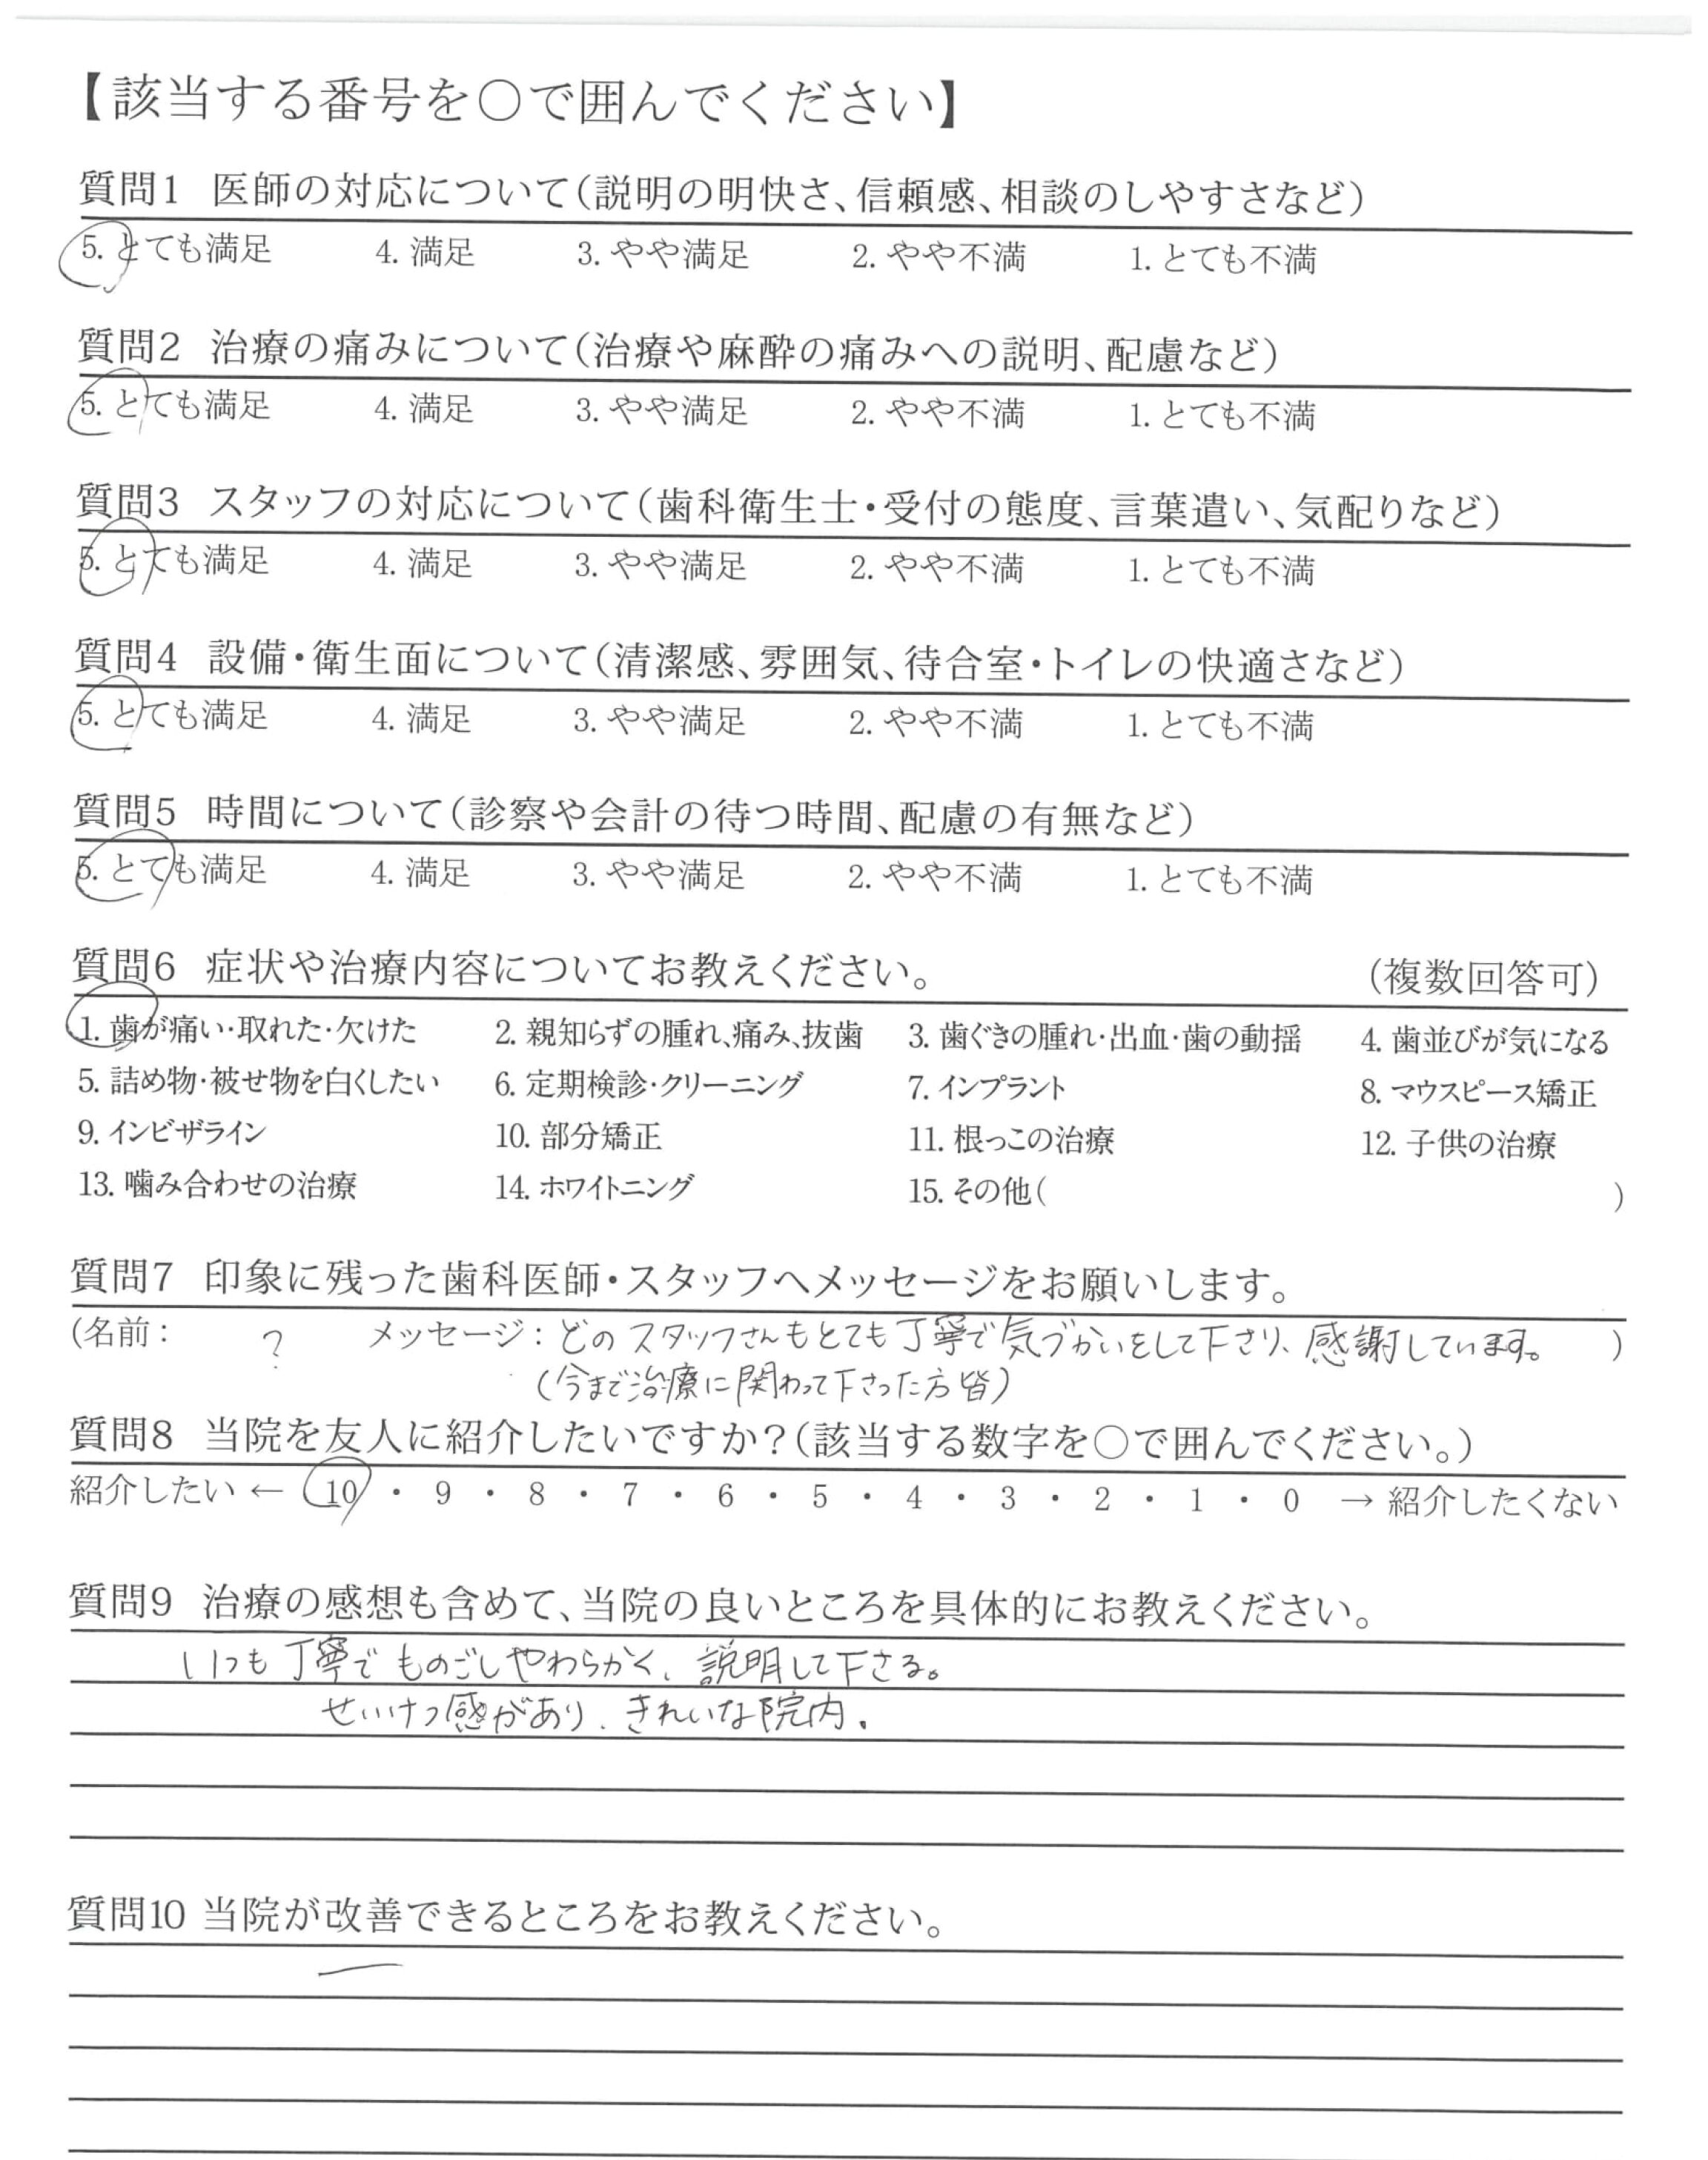 【該当する番号を○で囲んでください】
質問1 医師の対応について(説明の明快さ、信頼感、相談のしやすさなど)
5. とても満足 4. 満足 3. やや満足 2. やや不満 1. とても不満
質問2 治療の痛みについて(治療や麻酔の痛みへの説明、配慮など)
5. とても満足 4. 満足 3. やや満足 2. やや不満 1. とても不満
質問3 スタッフの対応について(歯科衛生士・受付の態度、言葉遣い、気配りなど)
5. とても満足 4. 満足 3. やや満足 2. やや不満 1. とても不満
質問4 設備・衛生面について(清潔感、雰囲気、待合室・トイレの快適さなど)
5. とても満足 4. 満足 3. やや満足 2. やや不満 1. とても不満
質問5 時間について(診察や会計の待つ時間、配慮の有無など)
5. とても満足 4. 満足 3. やや満足 2. やや不満 1. とても不満
質問6 症状や治療内容についてお教えください。 (複数回答可)
1. 歯が痛い・取れた・欠けた 2. 親知らずの腫れ、痛み、抜歯 3. 歯ぐきの腫れ・出血・歯の動揺 4. 歯並びが気になる
5. 詰め物・被せ物を白くしたい 6. 定期検診・クリーニング 7. インプラント 8. マウスピース矯正
9. インビザライン 10. 部分矯正 11. 根っこの治療 12. 子供の治療
13. 噛み合わせの治療 14. ホワイトニング 15. その他( )
質問7 印象に残った歯科医師・スタッフへメッセージをお願いします。
(名前： ? メッセージ：どのスタッフさんもとても丁寧で気づかいをして下さり、感謝しています。 )
(今まで治療に関わって下さった方皆)
質問8 当院を友人に紹介したいですか？(該当する数字を○で囲んでください。)
紹介したい ← 10 ・ 9 ・ 8 ・ 7 ・ 6 ・ 5 ・ 4 ・ 3 ・ 2 ・ 1 ・ 0 → 紹介したくない
質問9 治療の感想も含めて、当院の良いところを具体的にお教えください。
いつも丁寧でものごしやわらかく、説明して下さる。
せいけつ感があり、きれいな院内。
質問10 当院が改善できるところをお教えください。
―